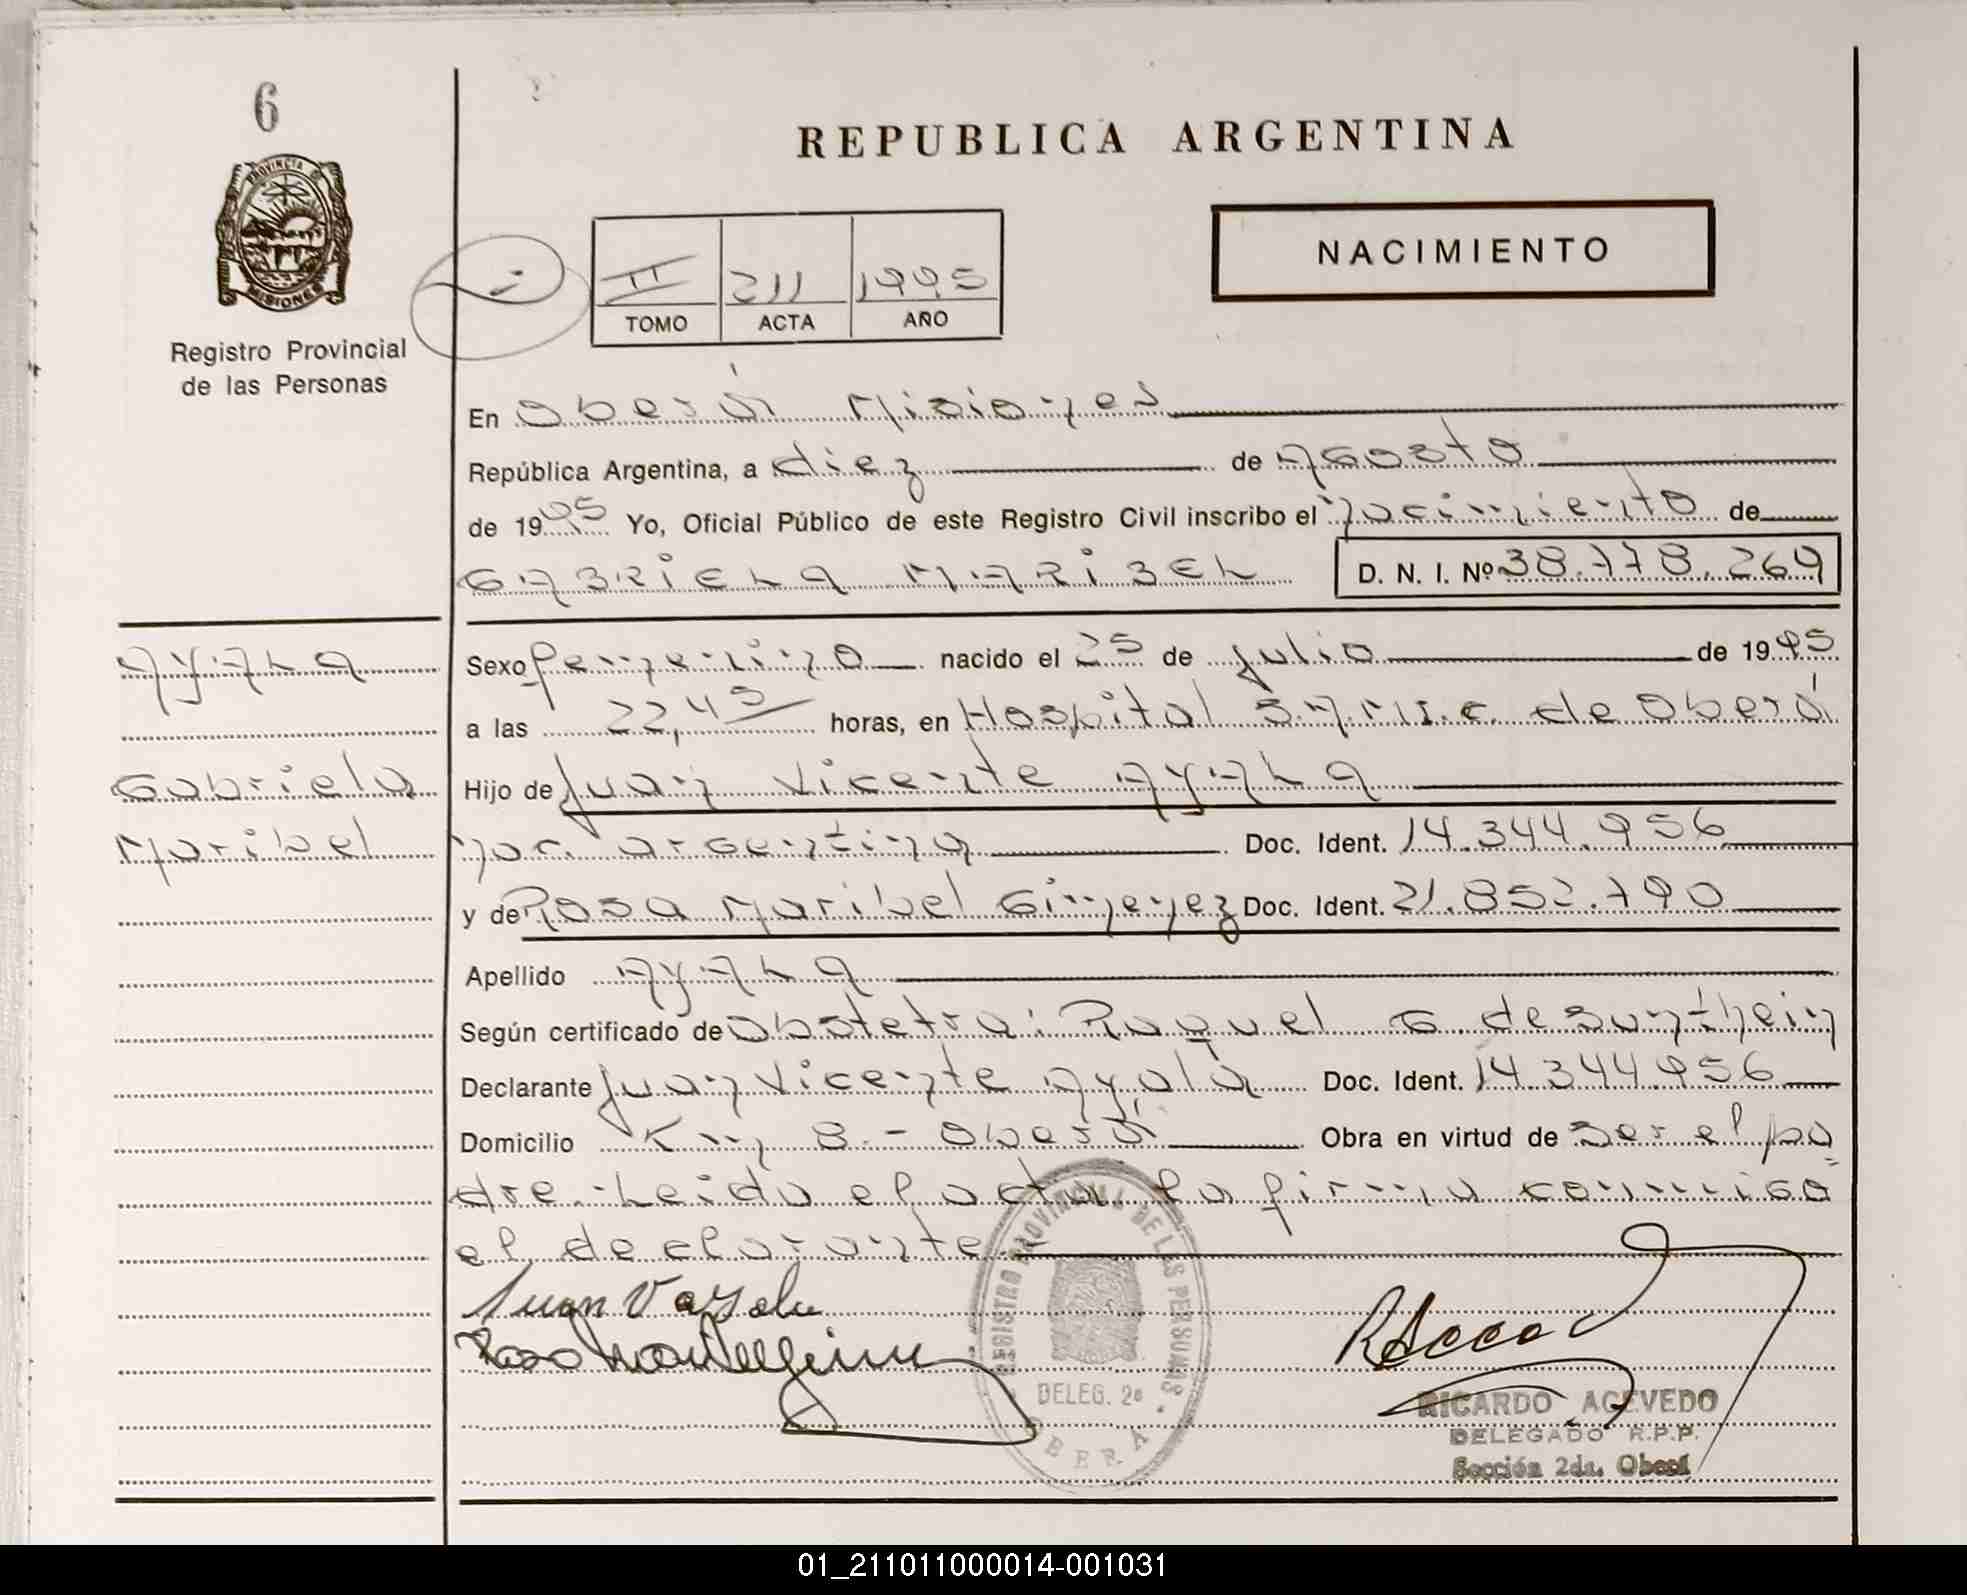 6
REPUBLICA ARGENTINA
PROVINCIA D
MISIONES
NACIMIENTO
II 211 1995
TOMO ACTA AÑO
Registro Provincial
de las Personas
En Oberá Misiones
República Argentina, a diez de Agosto
de 1995 Yo, Oficial Público de este Registro Civil inscribo el nacimiento de
GABRIELA MARIBEL D. N. I. Nº 38.778.269
Ayala
Gabriela
Maribel
Sexo femenino nacido el 25 de julio de 1995
a las 22,45 horas, en Hospital de Oberá
Hijo de Juan Vicente AYALA
nac. argentina Doc. Ident. 14.344.956
y de Rosa Maribel Gimenez Doc. Ident. 21.852.790
Apellido AYALA
Según certificado de Obstetra: Raquel G de
Declarante Juan Vicente Ayala Doc. Ident. 14.344.956
Domicilio Km 8.- Oberá Obra en virtud de ser el pa
dre.-Leida el acta la firma conmigo
el declarante
Juan V Ayala
REGISTRO PROVINCIAL DE LAS PERSONAS
DELEG. 2ª
OBERA
RICARDO ACEVEDO
DELEGADO R.P.P.
Sección 2da. Oberá
01_211011000014-001031